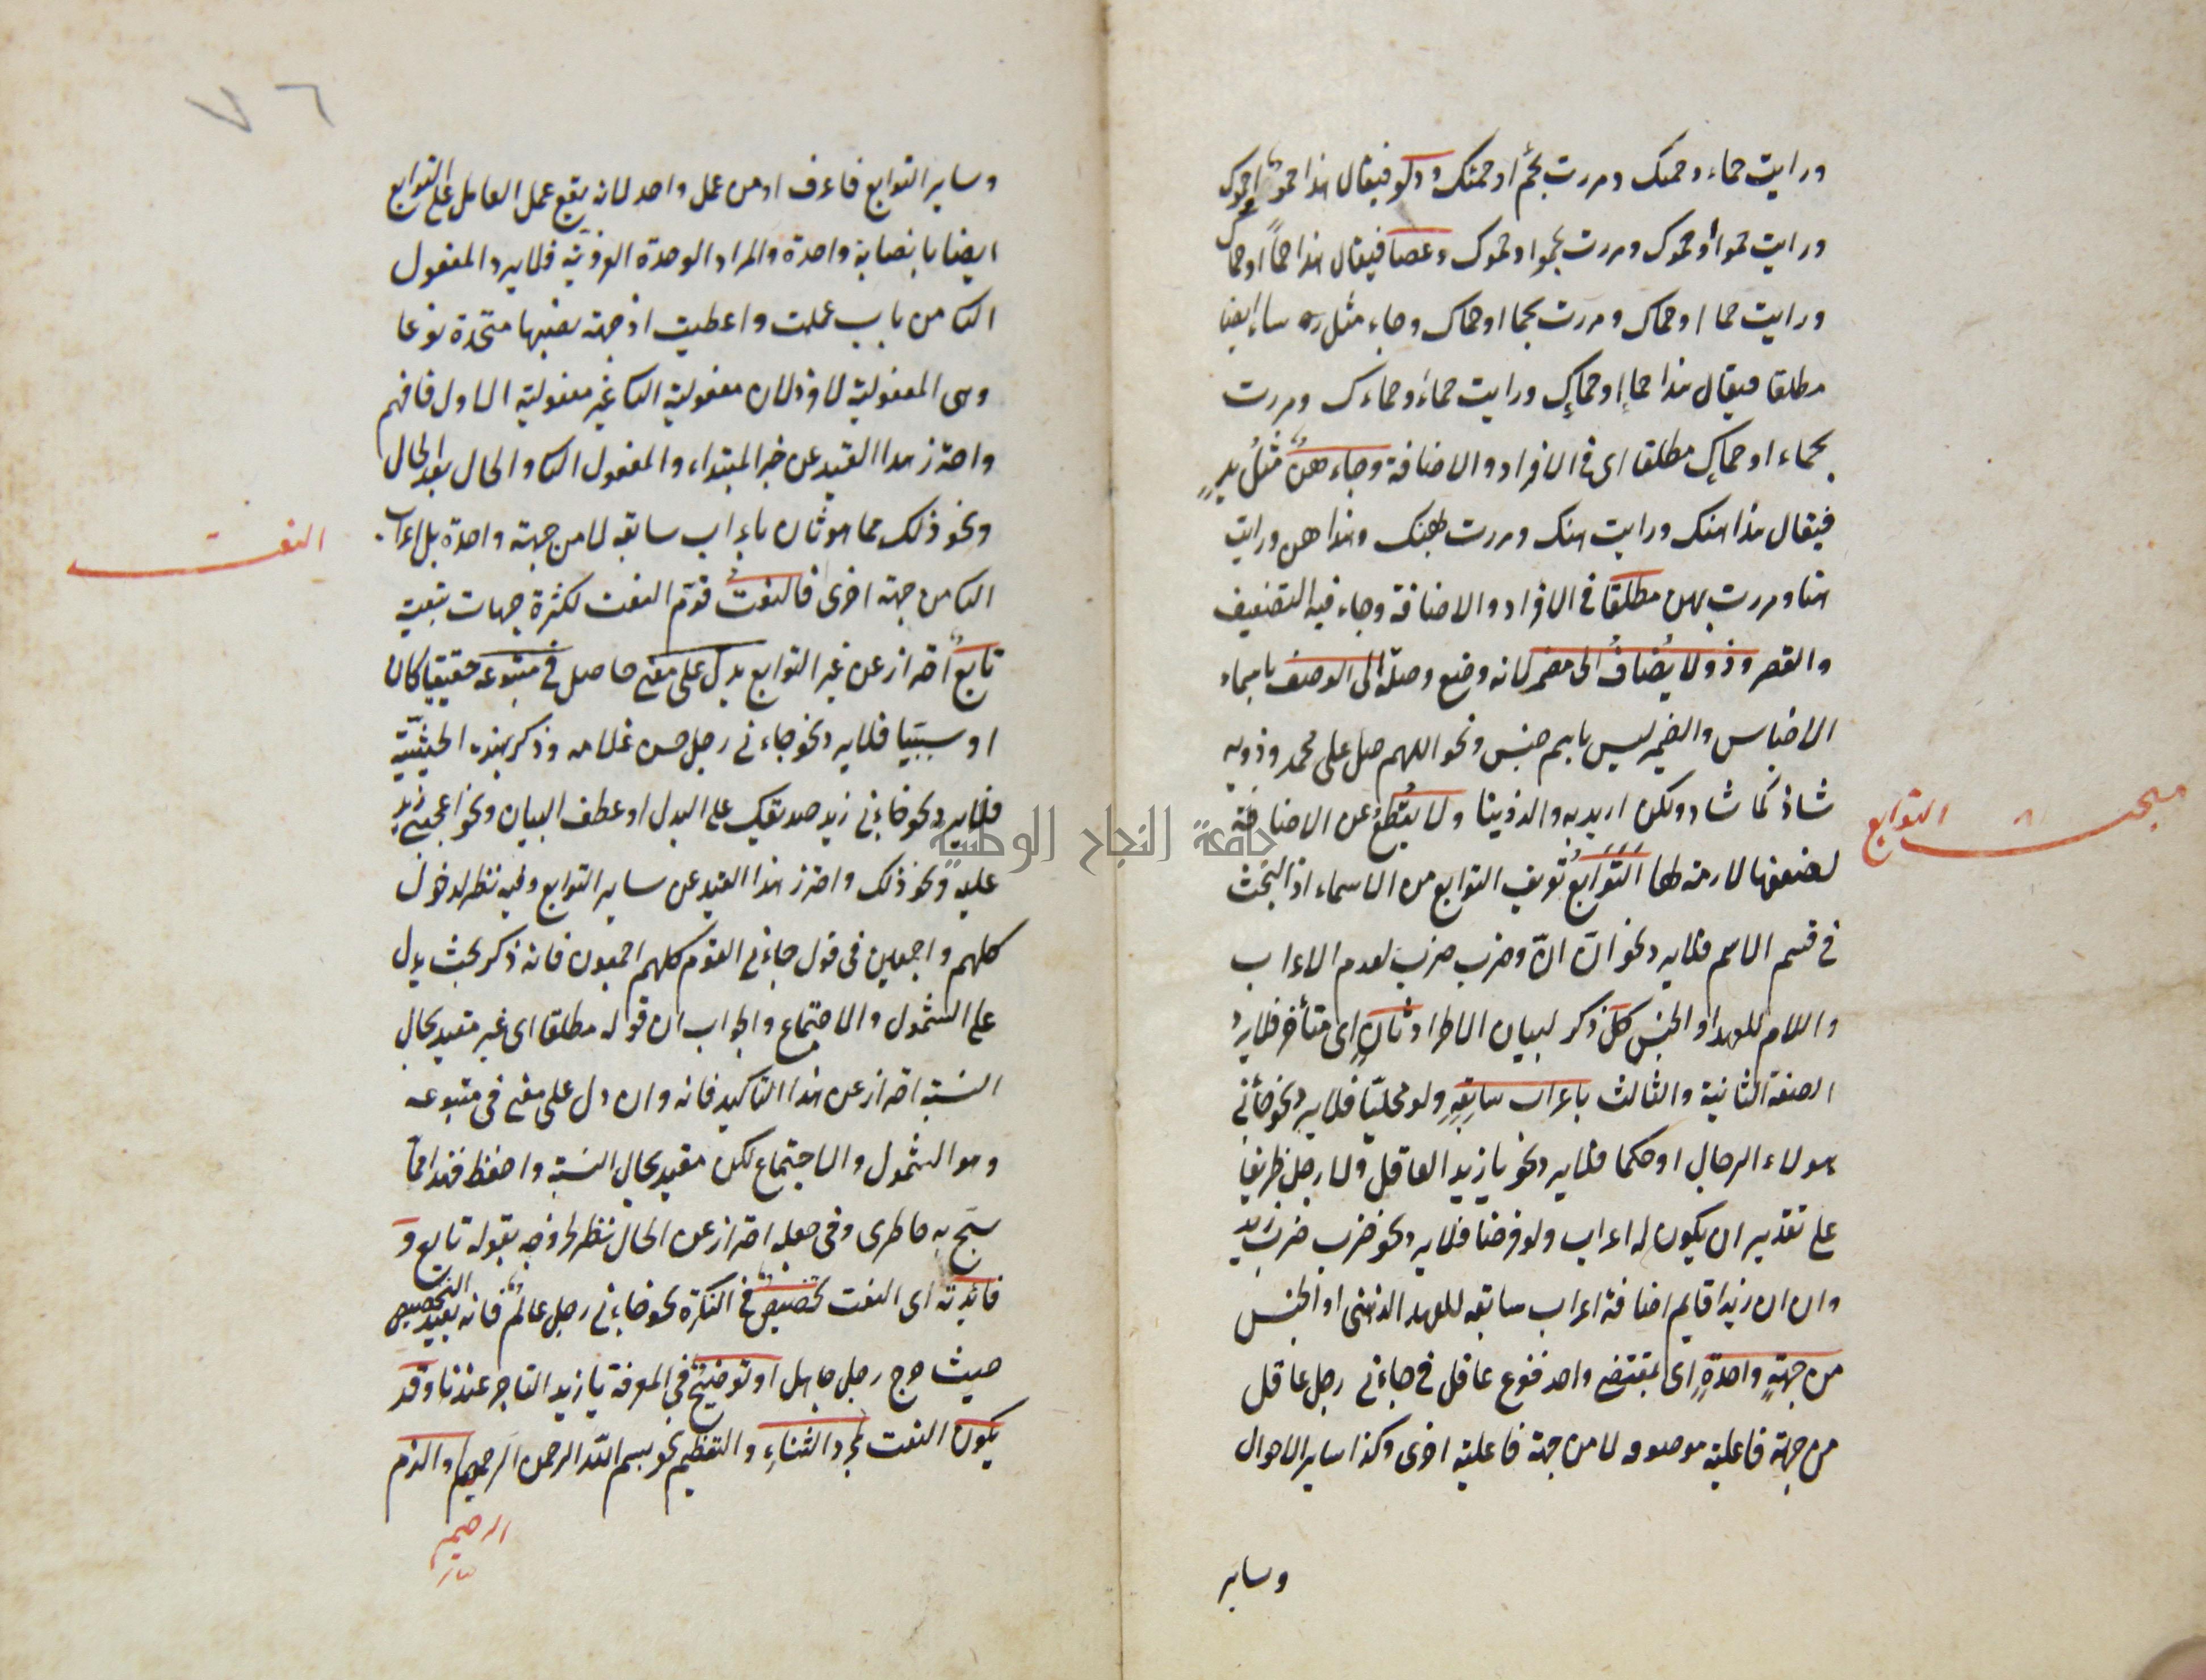 ورايت حماء وحمئك ومررت بحمء او حمئك ودلو فيقال هذا حمو وحموك
ورايت حموا وحموك ومررت بحمو او حموك وعصا فيقال هذا حما او حماك
ورايت حما او حماك ومررت بحما او حماك وجاء مثل ايضا
مطلقا فيقال هذا حماء او حماءك ورايت حماء وحماءك ومررت
بحماء او حماءك مطلقا اى فى الافراد والاضافة وجاء هن مثل يد
فيقال هذا هنك ورايت هنك ومررت بهنك وهذا هن ورايت
هنا ومررت بهن مطلقا فى الافراد والاضافة وجاء فيه التضعيف
والقصر وذو لا يضاف الى مضمر لانه وضع وصلة الى الوصف باسماء
الاجناس والضمير ليس باسم جنس ونحو اللهم صل على محمد وذويه
شاذ كما شاذ ولكن اريد به والذوينا ولا يقطع عن الاضافة
لضعفها لازمة لها التوابع تعريف التوابع من الاسماء اذ البحث
فى قسم الاسم فلا يرد نحو ان ان وضرب ضرب لعدم الاعراب
واللام للعهد او الجنس كل ذكر لبيان الاطراد ثان اى متأخر فلا يرد
الصفة الثانية والثالث باعراب سابقه ولو محليا فلا يرد نحو جائنى
هولاء الرجال او حكما فلا يرد نحو يا زيد العاقل ولا رجل ظريفا
على تقدير ان يكون له اعراب ولو فرضا فلا يرد نحو ضرب ضرب زيد
وان ان زيدا قايم اضافة اعراب سابقه للعهد الذهنى او الجنس
من جهة واحدة اى بمقتضى واحد فنوع عاقل فى جاءنى رجل عاقل
من جهة فاعلية موصوفه لا من جهة فاعلية اخرى وكذا ساير الاحوال
وساير
مبحث التوابع
٧٦
وساير التوابع فاعرف او من عمل واحد لانه يقع عمل العامل على التوابع
ايضا بانصابة واحدة والمراد الوحدة العرفية فلا يرد المفعول
الثا من باب علمت واعطيت اذ جهة نصبها متحدة نوعا
وهى المفعولية لا فردا لان مفعولية الثا غير مفعولية الاول فافهم
واحترز بهذا القيد عن خبر المبتداء والمفعول الثا والحال بعد الحال
ونحو ذلك مما هو ثان باعراب سابقه لا من جهة واحدة بل اعراب
الثا من جهة اخرى فالنعت قدم النعت لكثرة جهات تبعيت
تابع احتراز عن غير التوابع يدل على معنى حاصل فى متبوعه حقيقيا كان
او سببيا فلا يرد نحو جاءنى رجل حسن غلامه وذكر بهذه الحيثية
فلا يرد نحو جاءنى زيد صديقك على البدل او عطف البيان ونحو اعجبنى زيد
علمه ونحو ذلك واحترز بهذا القيد عن ساير التوابع وفيه نظر لدخول
كلهم واجمعين فى قول جاءنى القوم كلهم اجمعون فانه ذكر بحث يدل
على الشمول والاجتماع والجواب ان قوله مطلقا اى غير مقيد بحال
النسبة احتراز عن هذا التاكيد فانه وان دل على معنى فى متبوعه
وهو الشمول والاجتماع لكن مقيد بحال النسبة واحفظ فهذا مما
سنح به خاطرى وفى جعله احتراز عن الحال نظر لخروجه بقوله تابع و
فائدته اى النعت تخصيص فى النكرة نحو جاءنى رجل عالم فانه يفيد التخصيص
حيث خرج رجل جاهل او توضيح فى المعرفة يا زيد التاجر عندنا وقد
يكون النعت لمجرد الثناء والتعظيم نحو بسم الله الرحمن الرحيم او الذم
الرحيم
النعت
جامعة النجاح الوطنية